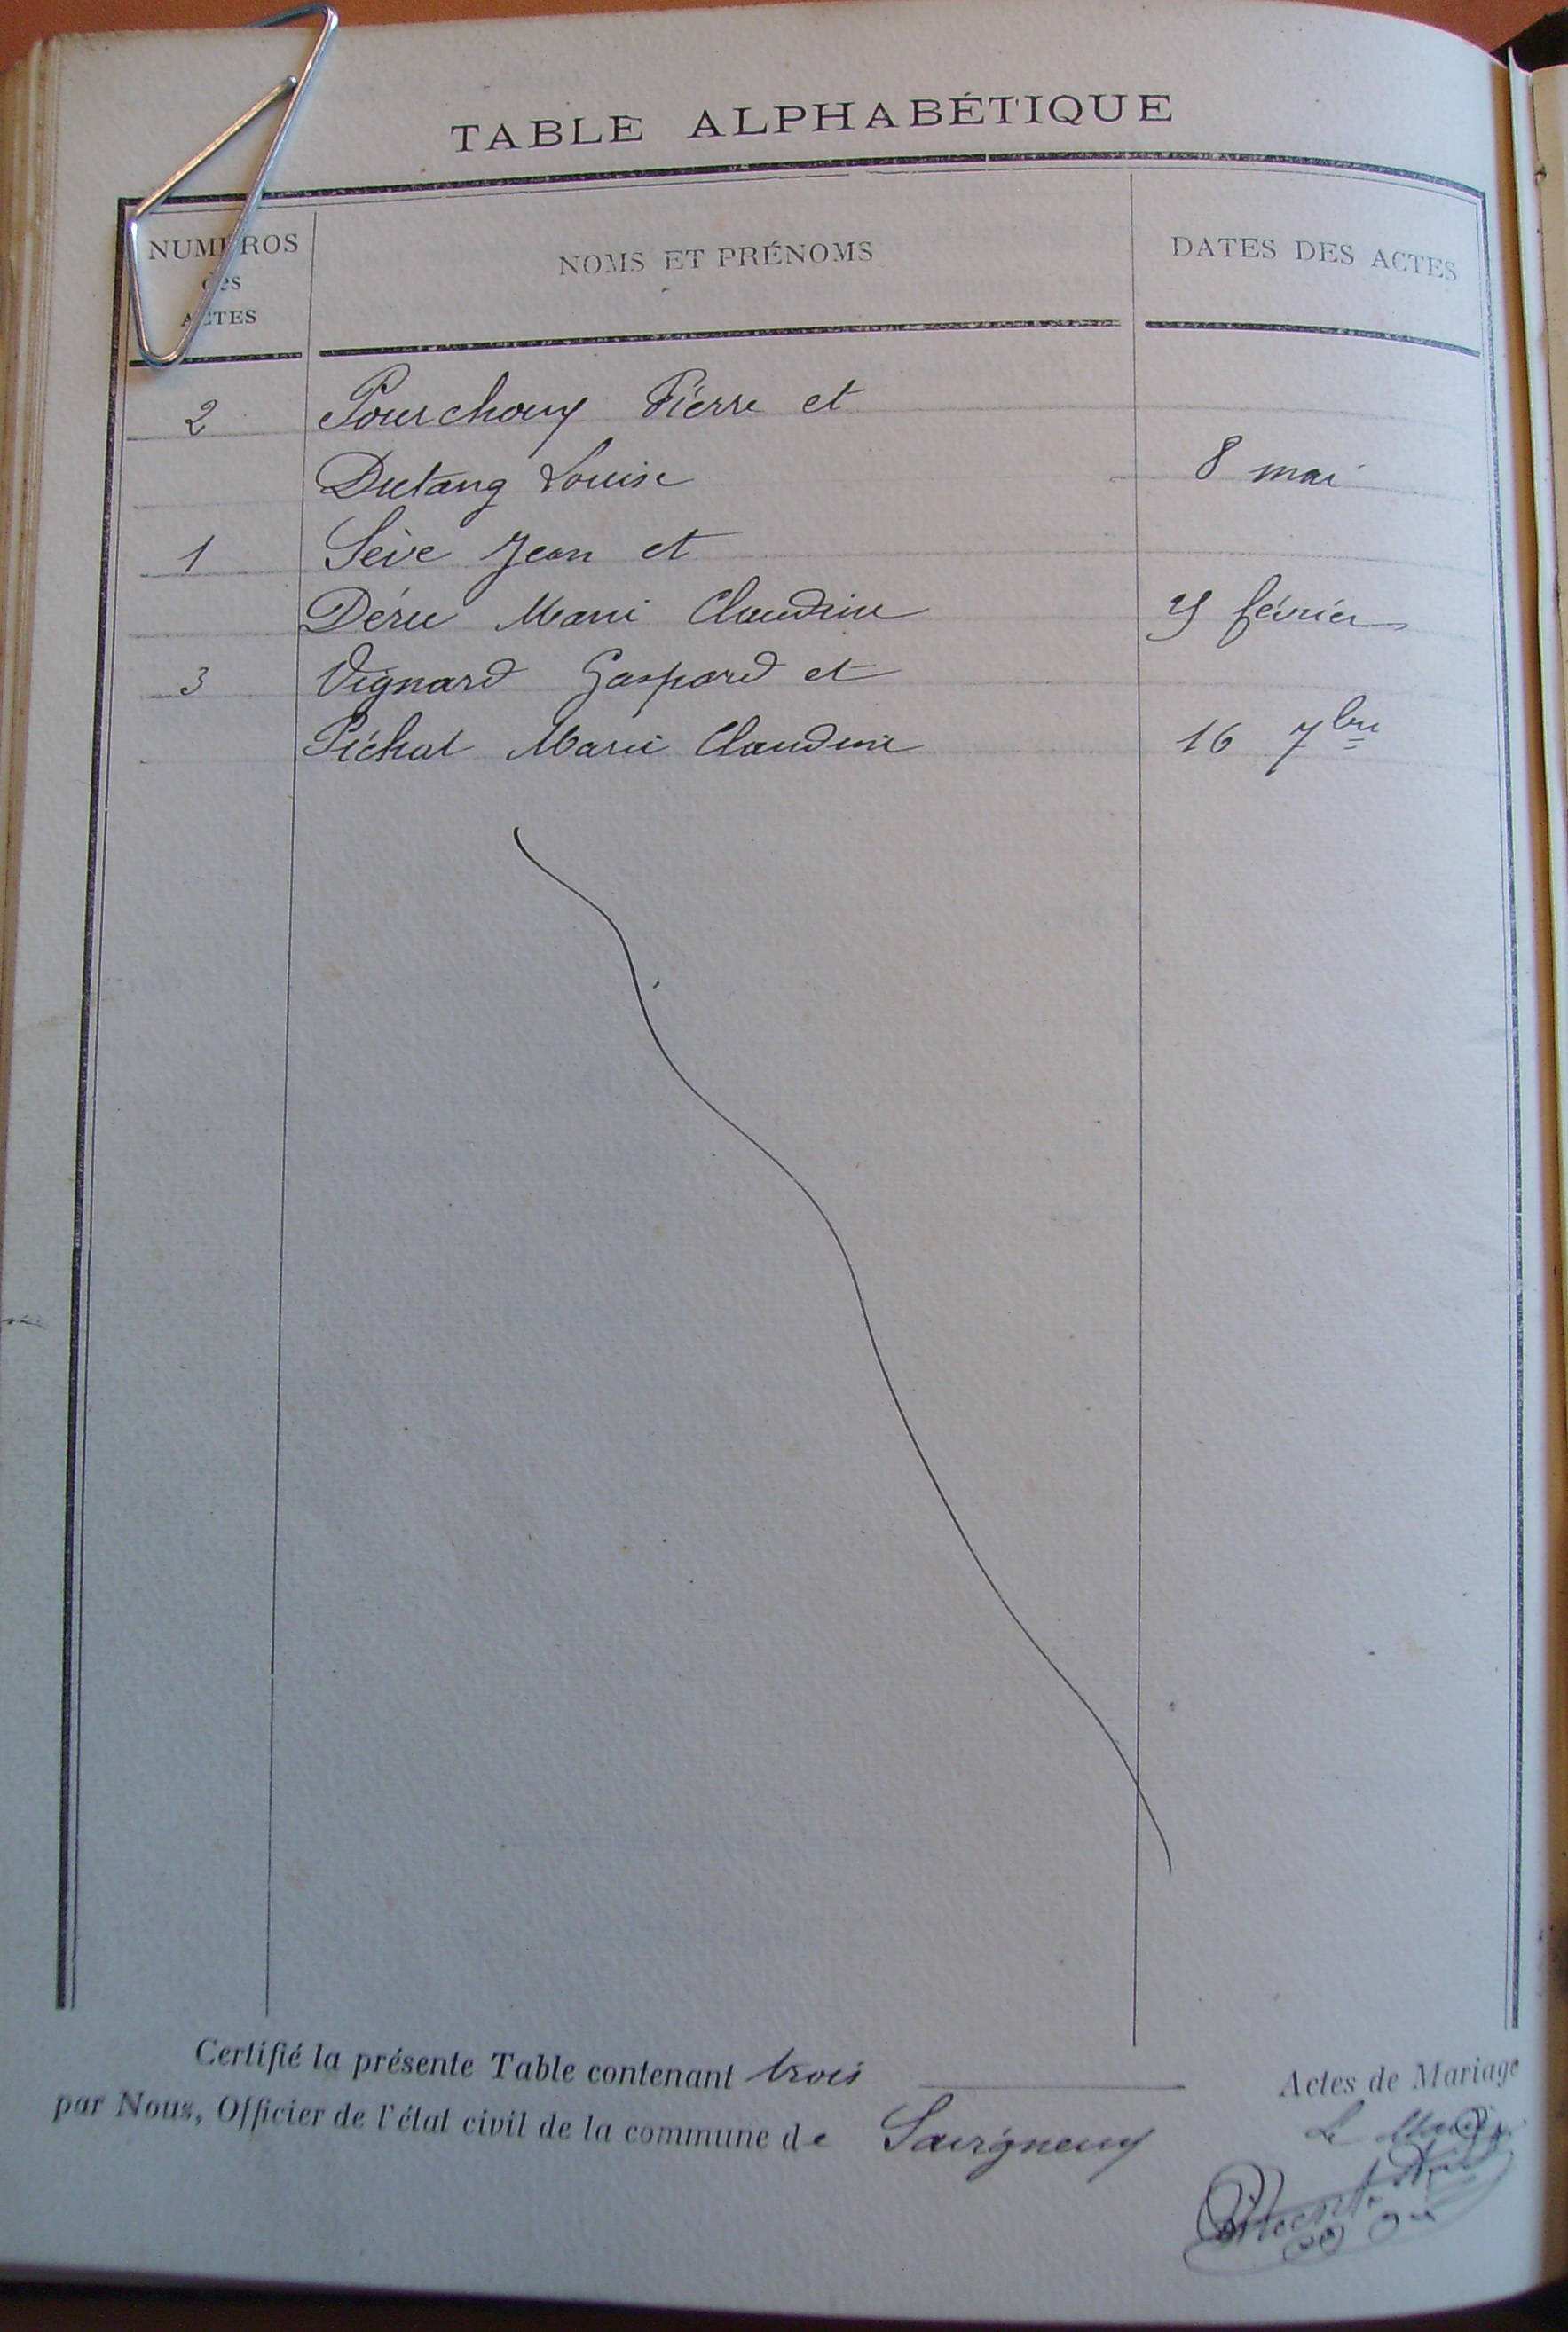 TABLE ALPHABÉTIQUE
NUMÉROS des ACTES
NOMS ET PRÉNOMS
DATES DES ACTES
2 Pourchoux Pierre et
Dutang Louise 8 mai
1 Sève Jean et
Marie Claudine février
3 Vignard Gaspard et
Péchat Marie Claudine 16 7bre
Certifié la présente Table contenant trois Actes de Mariage
par Nous, Officier de l'état civil de la commune de Savigneux
Le Maire